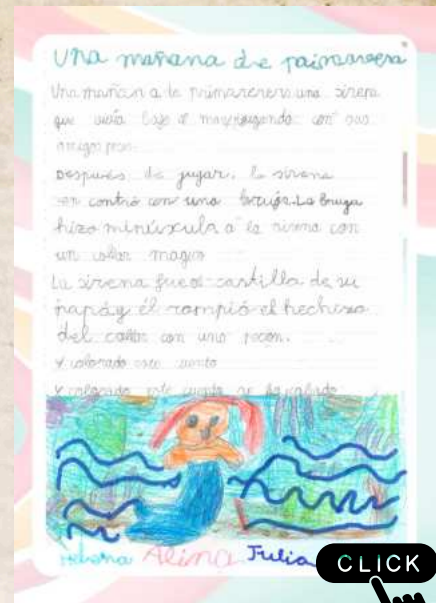 Una mañana de primavera
Una mañan a de primaverera una sirena
que vivía bajo el mar jugando con sus
amigos
Después de jugar, la sirena
en contró con una bruja. La bruja
hizo minúscula a la sirena con
un collar magico
La sirena fue al castillo de su
papá y él rompió el hechizo
del collar con uno
Y colorado este cuento
Y colorado este cuento se ha cabado
Alina Julia
CLICK